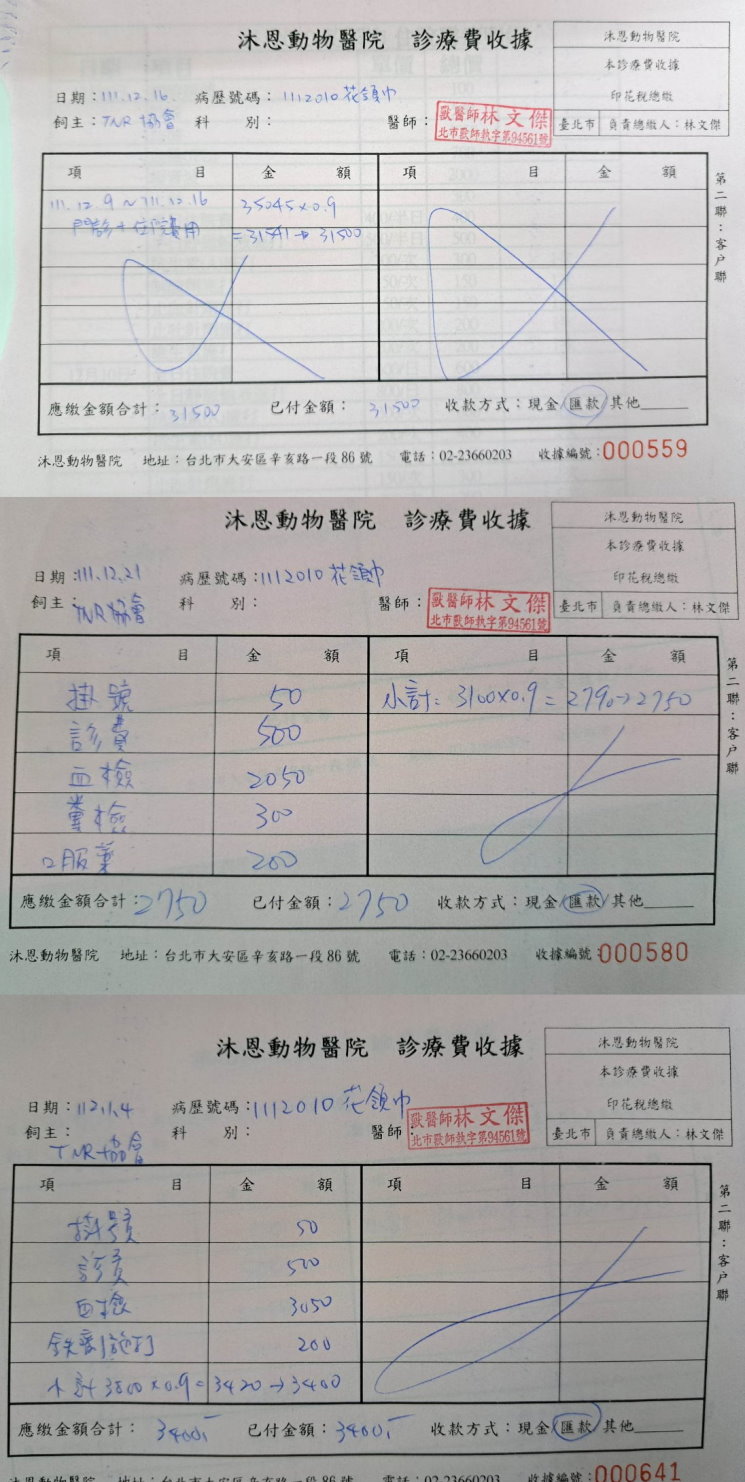 沐恩動物醫院 診療費收據
沐恩動物醫院
本診療費收據
印花稅總繳
臺北市 負責總繳人：林文傑
日期：111.12.16 病歷號碼：1112010 花領巾
飼主：TNR 協會 科 別： 醫師：
獸醫師林文傑
北市獸師執字第94561號
項 目 金 額 項 目 金 額
111.12.9～111.12.16 35045×0.9
門診+住院費用 =31541→31500
第二聯：客戶聯
應繳金額合計：31500 已付金額：31500 收款方式：現金/匯款/其他
沐恩動物醫院 地址：台北市大安區辛亥路一段86號 電話：02-23660203 收據編號：000559
沐恩動物醫院 診療費收據
沐恩動物醫院
本診療費收據
印花稅總繳
臺北市 負責總繳人：林文傑
日期：111.12.21 病歷號碼：1112010 花領巾
飼主：TNR協會 科 別： 醫師：
獸醫師林文傑
北市獸師執字第94561號
項 目 金 額 項 目 金 額
掛號 50 小計：3100×0.9=2790→2750
診費 500
血檢 2050
糞檢 300
口服藥 200
第二聯：客戶聯
應繳金額合計：2750 已付金額：2750 收款方式：現金/匯款/其他
沐恩動物醫院 地址：台北市大安區辛亥路一段86號 電話：02-23660203 收據編號：000580
沐恩動物醫院 診療費收據
沐恩動物醫院
本診療費收據
印花稅總繳
臺北市 負責總繳人：林文傑
日期：112.1.4 病歷號碼：1112010 花領巾
飼主：TNR協會 科 別： 醫師：
獸醫師林文傑
北市獸師執字第94561號
項 目 金 額 項 目 金 額
掛號 50
診費 500
血檢 3050
鉄劑施打 200
小計3800×0.9=3420→3400
第二聯：客戶聯
應繳金額合計：3400 已付金額：3400 收款方式：現金/匯款/其他
沐恩動物醫院 地址：台北市大安區辛亥路一段86號 電話：02-23660203 收據編號：000641